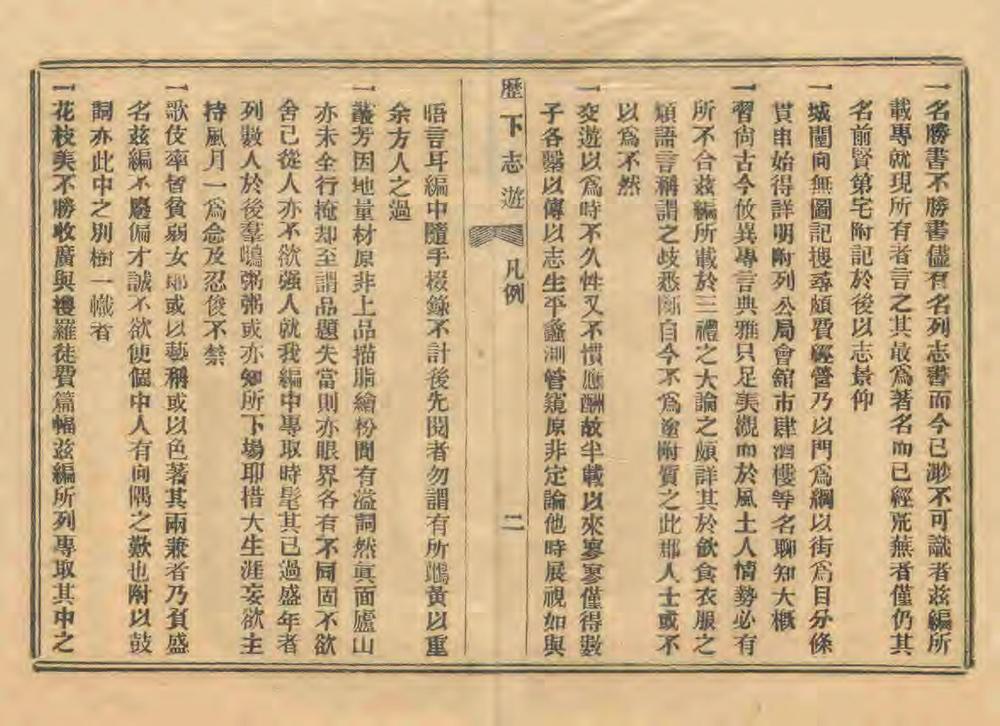 一名勝書不勝書儘有名列志書而今已渺不可識者茲編所
載專就現所有者言之其最爲著名而已經荒蕪者僅仍其
名前賢第宅附記於後以志景仰
一城闉向無圖記搜尋頗費經營乃以門爲綱以街爲目分條
貫串始得詳明附列公局會館市肆酒樓等名聊知大槪
一習尙古今攸異專言典雅只足美觀而於風土人情勢必有
所不合茲編所載於三禮之大論之頗詳其於飮食衣服之
類語言稱謂之歧悉斷自今不爲塗附質之此都人士或不
以爲不然
一交遊以爲時不久性又不慣應酬故半載以來寥寥僅得數
子各繫以傳以志生平蠡測管窺原非定論他時展視如與
歷下志遊 凡例 二
晤言耳編中隨手綴錄不計後先閱者勿謂有所雌黃以重
余方人之過
一叢芳因地量材原非上品描脂繪粉間有溢詞然眞面廬山
亦未全行掩却至謂品題失當則亦眼界各有不同固不欲
舍己從人亦不欲强人就我編中專取時髦其已過盛年者
列數人於後羣雌粥粥或亦知所下場耶措大生涯妄欲主
持風月一爲念及忍俊不禁
一歌伎率皆貧弱女耶或以藝稱或以色著其兩兼者乃負盛
名茲編不廢偏才誠不欲使個中人有向隅之歎也附以鼓
詞亦此中之別樹一幟者
一花枝美不勝收廣與搜羅徒費篇幅茲編所列專取其中之